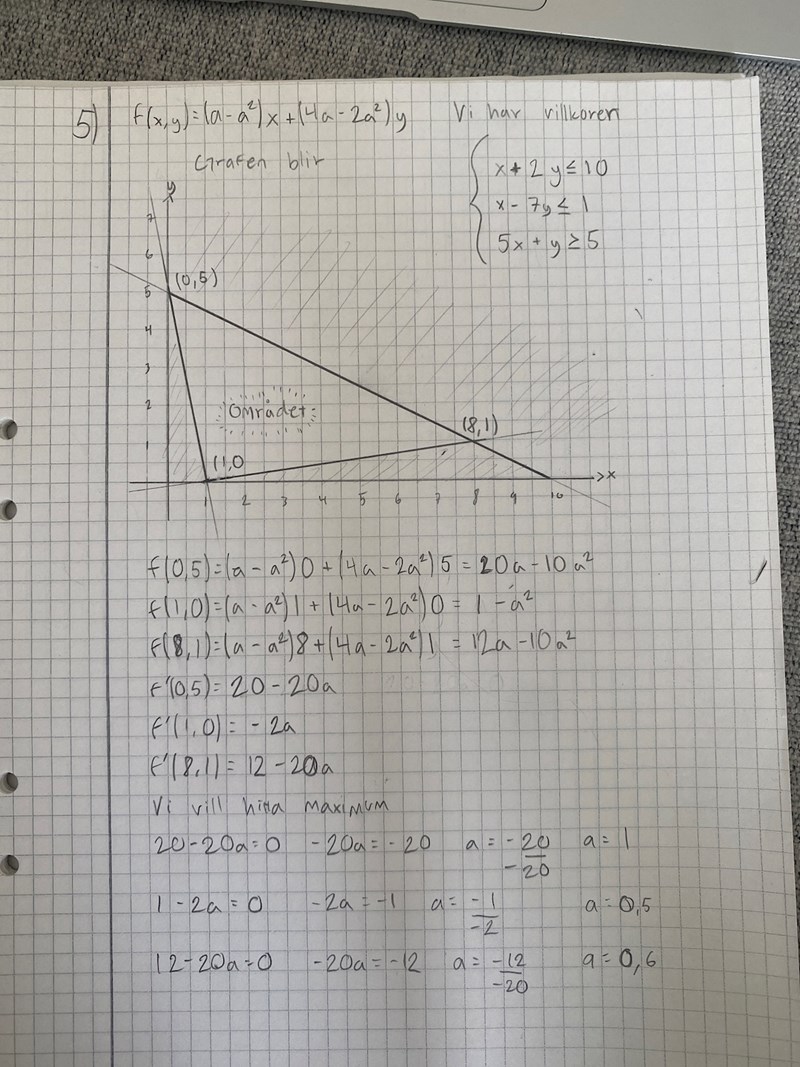 5) f(x,y)=(a-a²)x+(4a-2a²)y Vi har villkoren
Grafen blir
x+2y≤10
x-7y≤1
5x+y≥5
y
7
6
(0,5)
5
4
3
2
Området
1
(8,1)
(1,0
1 2 3 4 5 6 7 8 9 10 >x
f(0,5)=(a-a²)0+(4a-2a²)5=20a-10a²
f(1,0)=(a-a²)1+(4a-2a²)0=1-a²
f(8,1)=(a-a²)8+(4a-2a²)1=12a-10a²
f'(0,5)=20-20a
f'(1,0)=-2a
f'(8,1)=12-20a
Vi vill hitta maximum
20-20a=0 -20a=-20 a=-20/-20 a=1
1-2a=0 -2a=-1 a=-1/-2 a=0,5
12-20a=0 -20a=-12 a=-12/-20 a=0,6